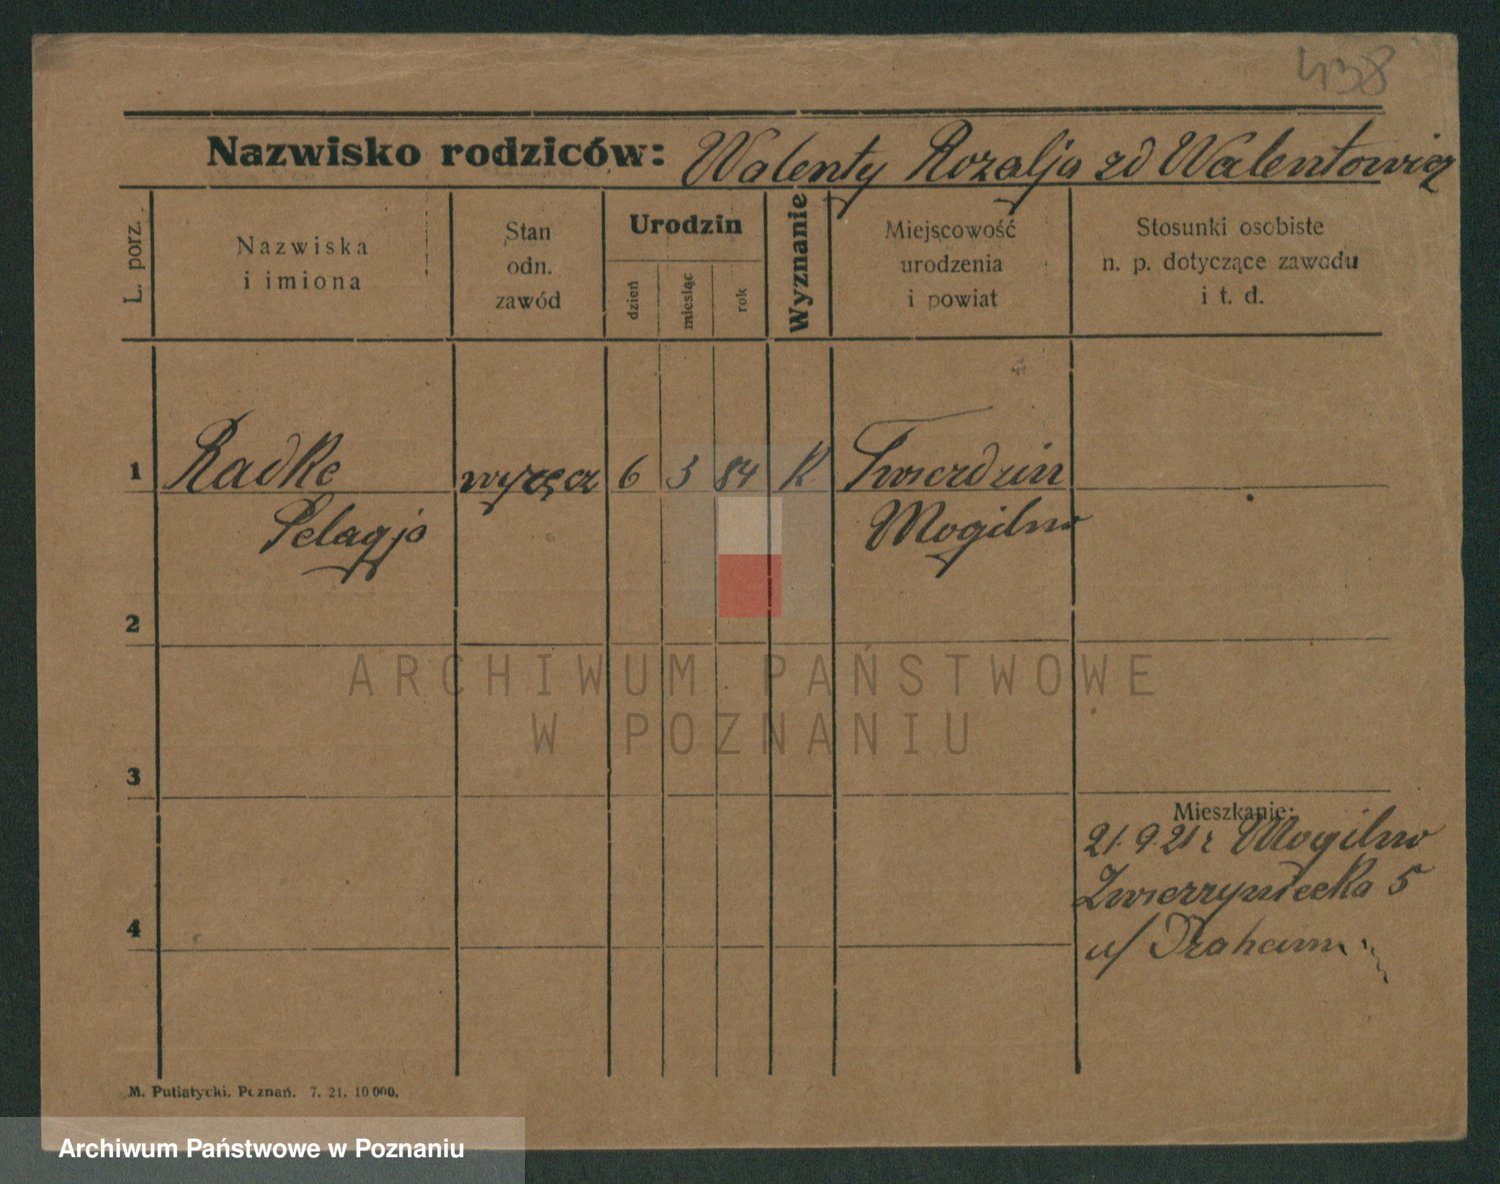 438
Nazwisko rodziców: Walenty Rozalja zd Walentowicz
L. porz.
Nazwiska
i imiona
Stan
odn.
zawód
Urodzin
dzień
miesiąc
rok
Wyznanie
Miejscowość
urodzenia
i powiat
Stosunki osobiste
n. p. dotyczące zawodu
i t. d.
1 Radke 6 3 84 K Twierdzin
Pelagja Mogilno
2
ARCHIWUM PAŃSTWOWE
W POZNANIU
3
Mieszkanie:
21.9.21r Mogilno
Zwierzyniecka 5
4
u/
M. Putiatycki. Poznań. 7. 21. 10 000.
Archiwum Państwowe w Poznaniu